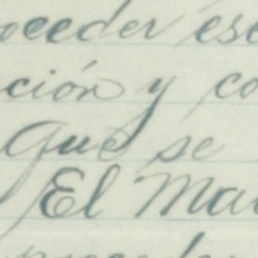 oceder ese
ción y co
que se
El Mar